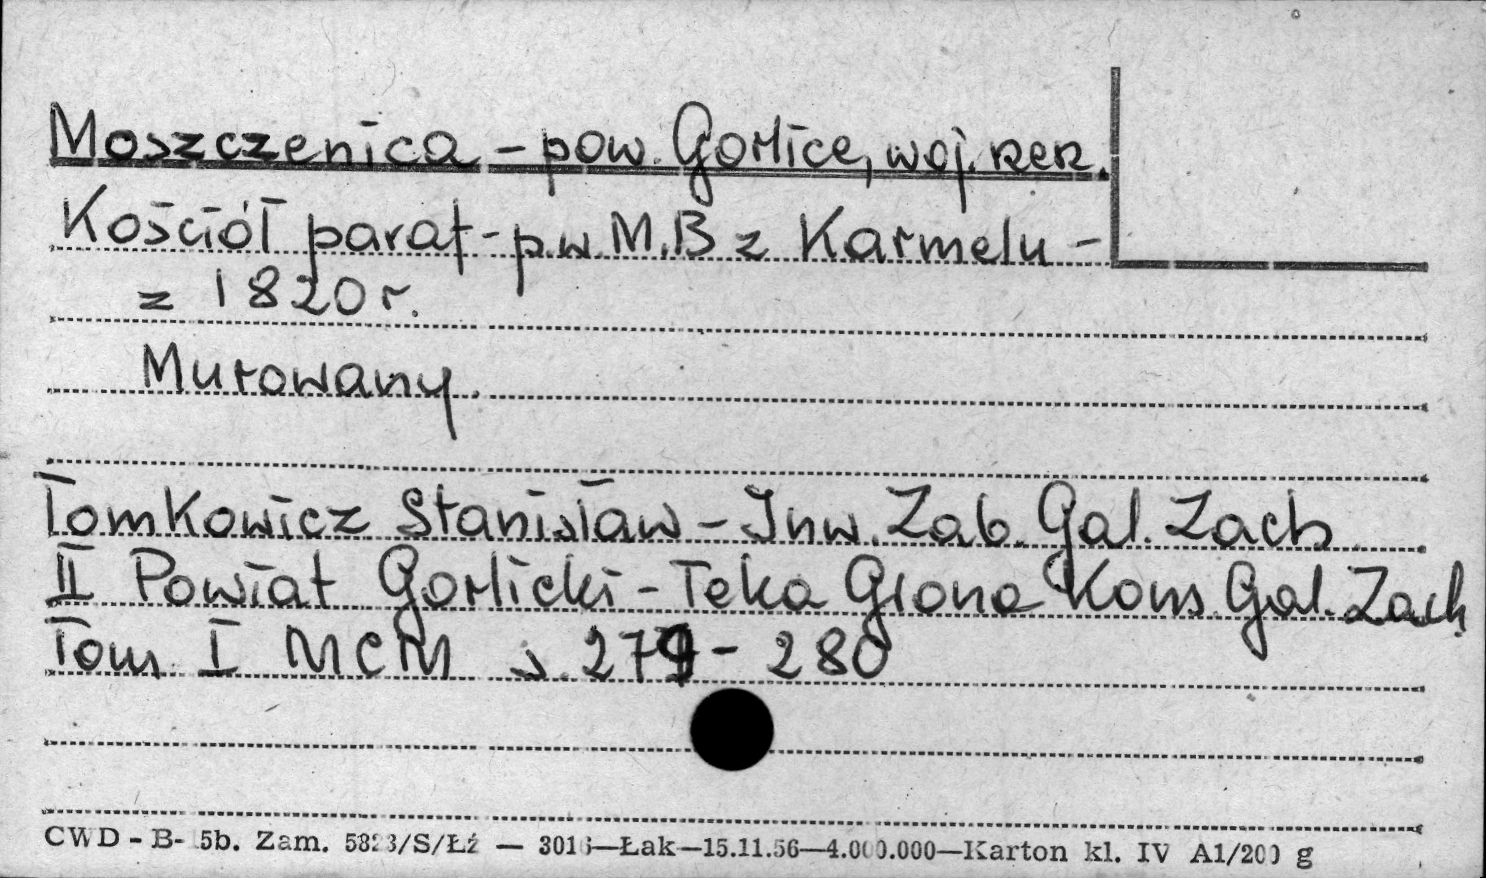 Moszczenica - pow. Gorlice, woj. rzesz.
Kościół paraf - p.w. M.B z Karmelu -
z 1820 r.
Murowany.
Tomkowicz Stanisław - Inw. Zab. Gal. Zach
II Powiat Gorlicki - Teka Grona Kons. Gal. Zach
Tom I MCM s. 279 - 280
CWD - B- 5b. Zam. 5823/S/Łź — 3016—Łak—15.11.56—4.000.000—Karton kl. IV A1/200 g